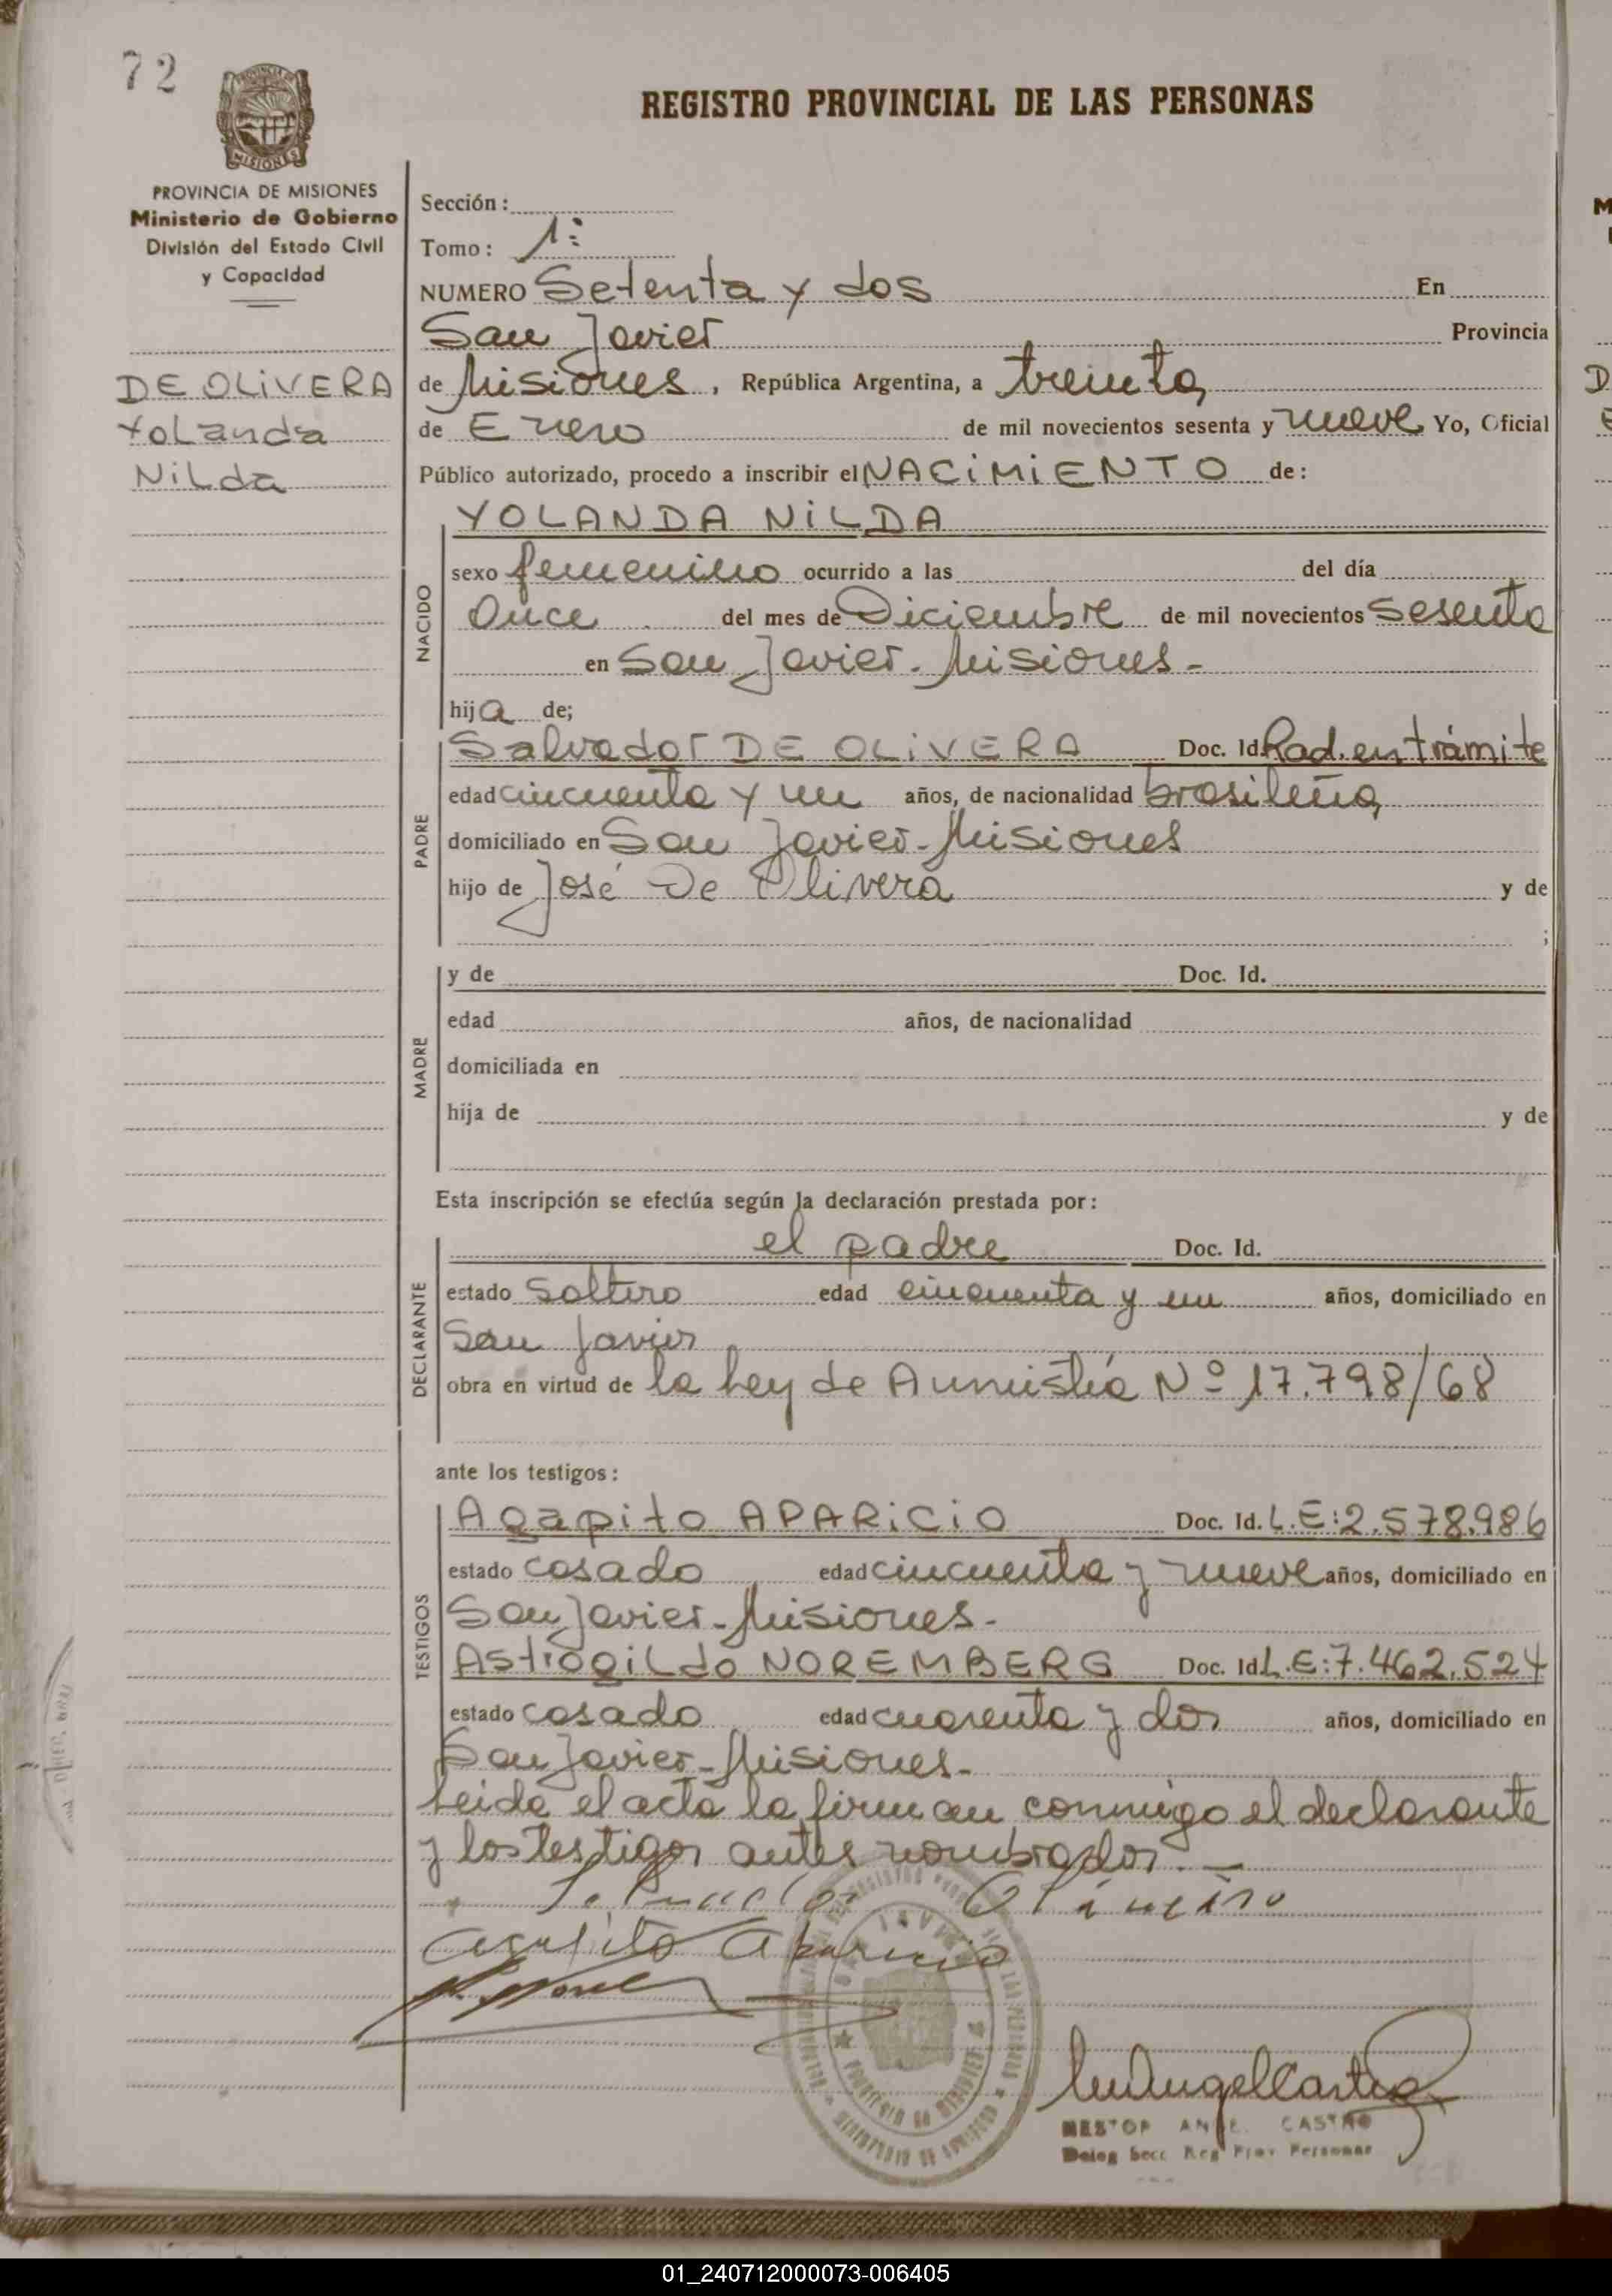 72
MISIONES
REGISTRO PROVINCIAL DE LAS PERSONAS
PROVINCIA DE MISIONES
Ministerio de Gobierno
División del Estado Civil
y Capacidad
DE OLIVERA
Yolanda
Nilda
Sección :
Tomo : 1º
NUMERO Setenta y dos En
San Javier Provincia
de Misiones , República Argentina, a treinta
de Enero de mil novecientos sesenta y nueve Yo, Oficial
Público autorizado, procedo a inscribir el NACIMIENTO de :
NACIDO
YOLANDA NILDA
sexo femenino ocurrido a las del día
Once del mes de Diciembre de mil novecientos sesenta
en San Javier - Misiones -
hija de;
PADRE
Salvador DE OLIVERA Doc. Id. Rad. en trámite
edad cincuenta y un años, de nacionalidad brasileña
domiciliado en San Javier - Misiones
hijo de José De Olivera y de
;
MADRE
y de Doc. Id.
edad años, de nacionalidad
domiciliada en
hija de y de
Esta inscripción se efectúa según la declaración prestada por :
DECLARANTE
el padre Doc. Id.
estado soltero edad cincuenta y un años, domiciliado en
San Javier
obra en virtud de la Ley de Amnistía Nº 17.798/68
ante los testigos :
TESTIGOS
Agapito APARICIO Doc. Id. L.E: 2.578.986
estado casado edad cincuenta y nueve años, domiciliado en
San Javier - Misiones -
Astrogildo NOREMBERG Doc. Id. L.E: 7.462.524
estado casado edad cuarenta y dos años, domiciliado en
San Javier - Misiones -
Leida el acta la firman conmigo el declarante
y los testigos antes nombrados. -
Agapito Aparicio
NESTOR ANGEL CASTRO
Deleg Secc Reg Prov Personas
01_240712000073-006405